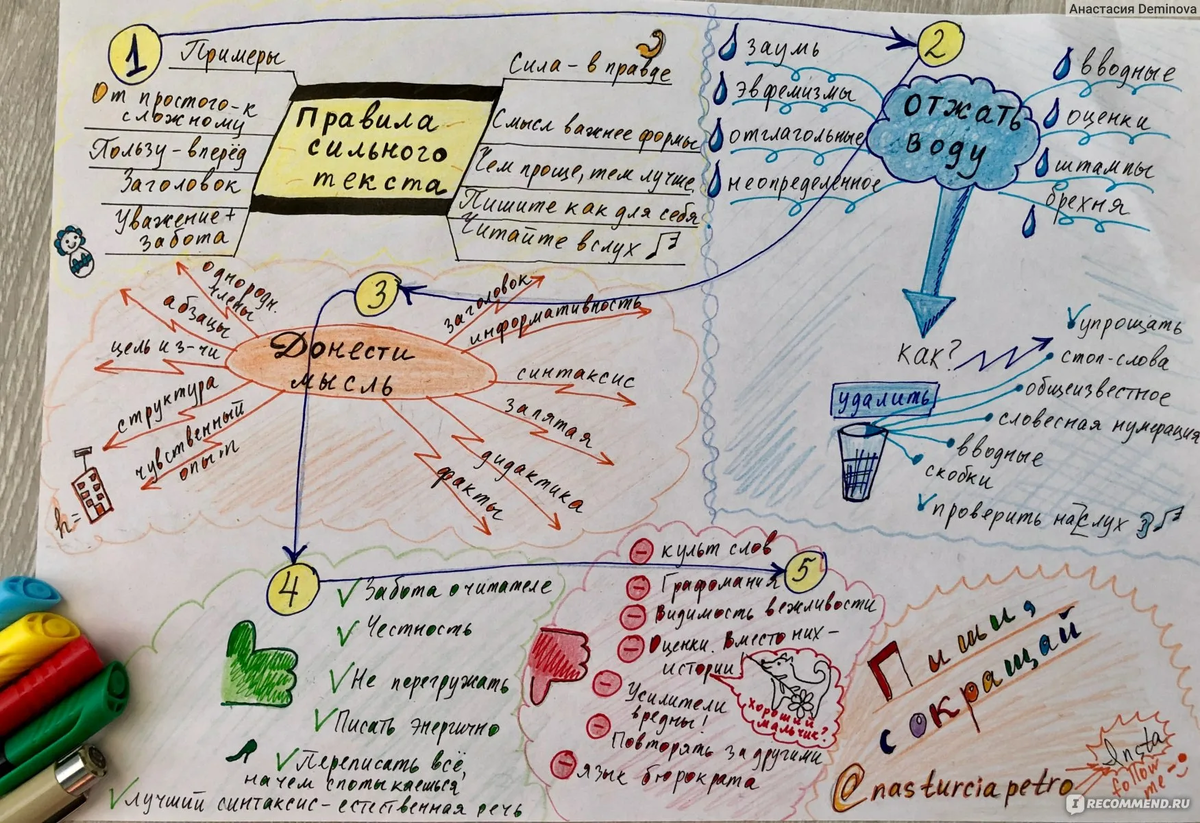 Анастасия Deminova
1
Примеры
От простого-к
сложному
Пользу-вперёд
Заголовок
Уважение+
забота
Правила
сильного
текста
Сила-в правде
Смысл важнее формы
Чем проще, тем лучше
Пишите как для себя
Читайте вслух
2
заумь
эвфемизмы
отглагольные
неопределённое
отжать
воду
вводные
оценки
штампы
брехня
как?
упрощать
удалить
стоп-слова
общеизвестное
словесная нумерация
вводные
скобки
проверить на слух
3
Донести
мысль
однородн.
члены
абзацы
цель из-чи
структура
чувственный
опыт
заголовок
информативность
синтаксис
запятая
дидактика
факты
h=
4
Забота о читателе
Честность
Не перегружать
Писать энергично
Переписать всё,
на чем спотыкаешься
лучший синтаксис-естественная речь
5
культ слов
Графомания
Видимость вежливости
Оценки. Вместо них-
истории
Усилители
вредны!
Повторять за другими
язык бюрократа
Хороший
мальчик?
Пиши,
сокращай
@nasturciapetro
Insta
follow
me
IRECOMMEND.RU